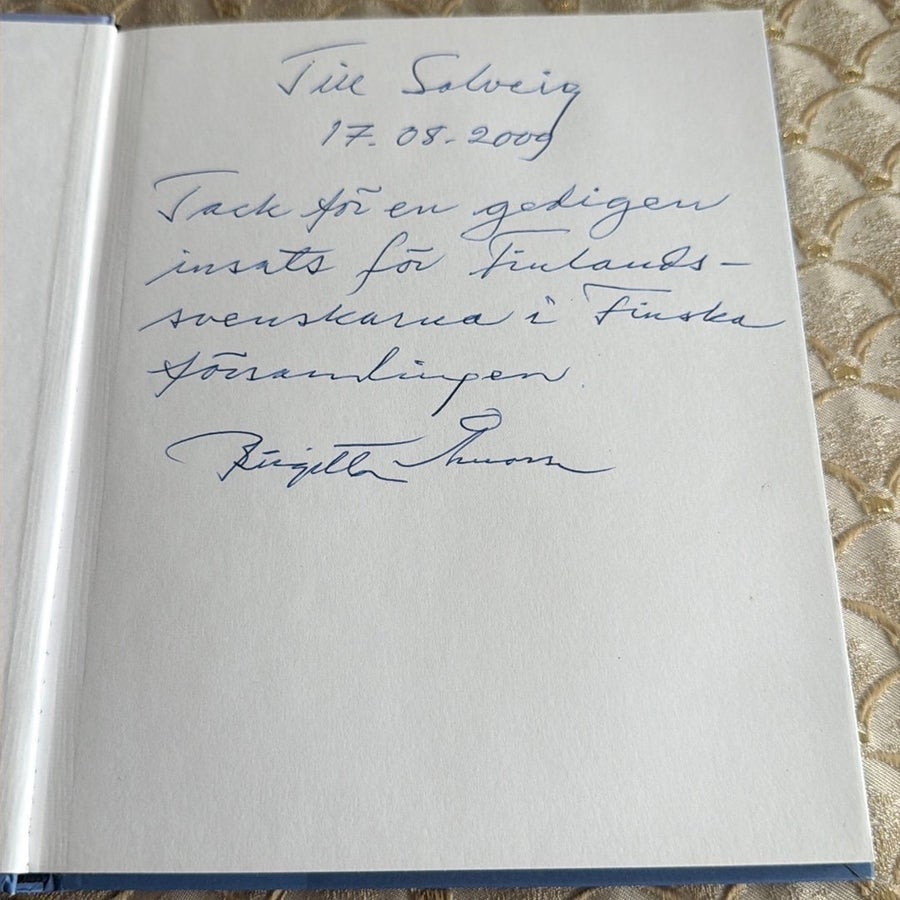 Till Solveig
17.08-2009
Tack för en gedigen
insats för Finlands-
svenskarna i Finska
församlingen
Birgitta